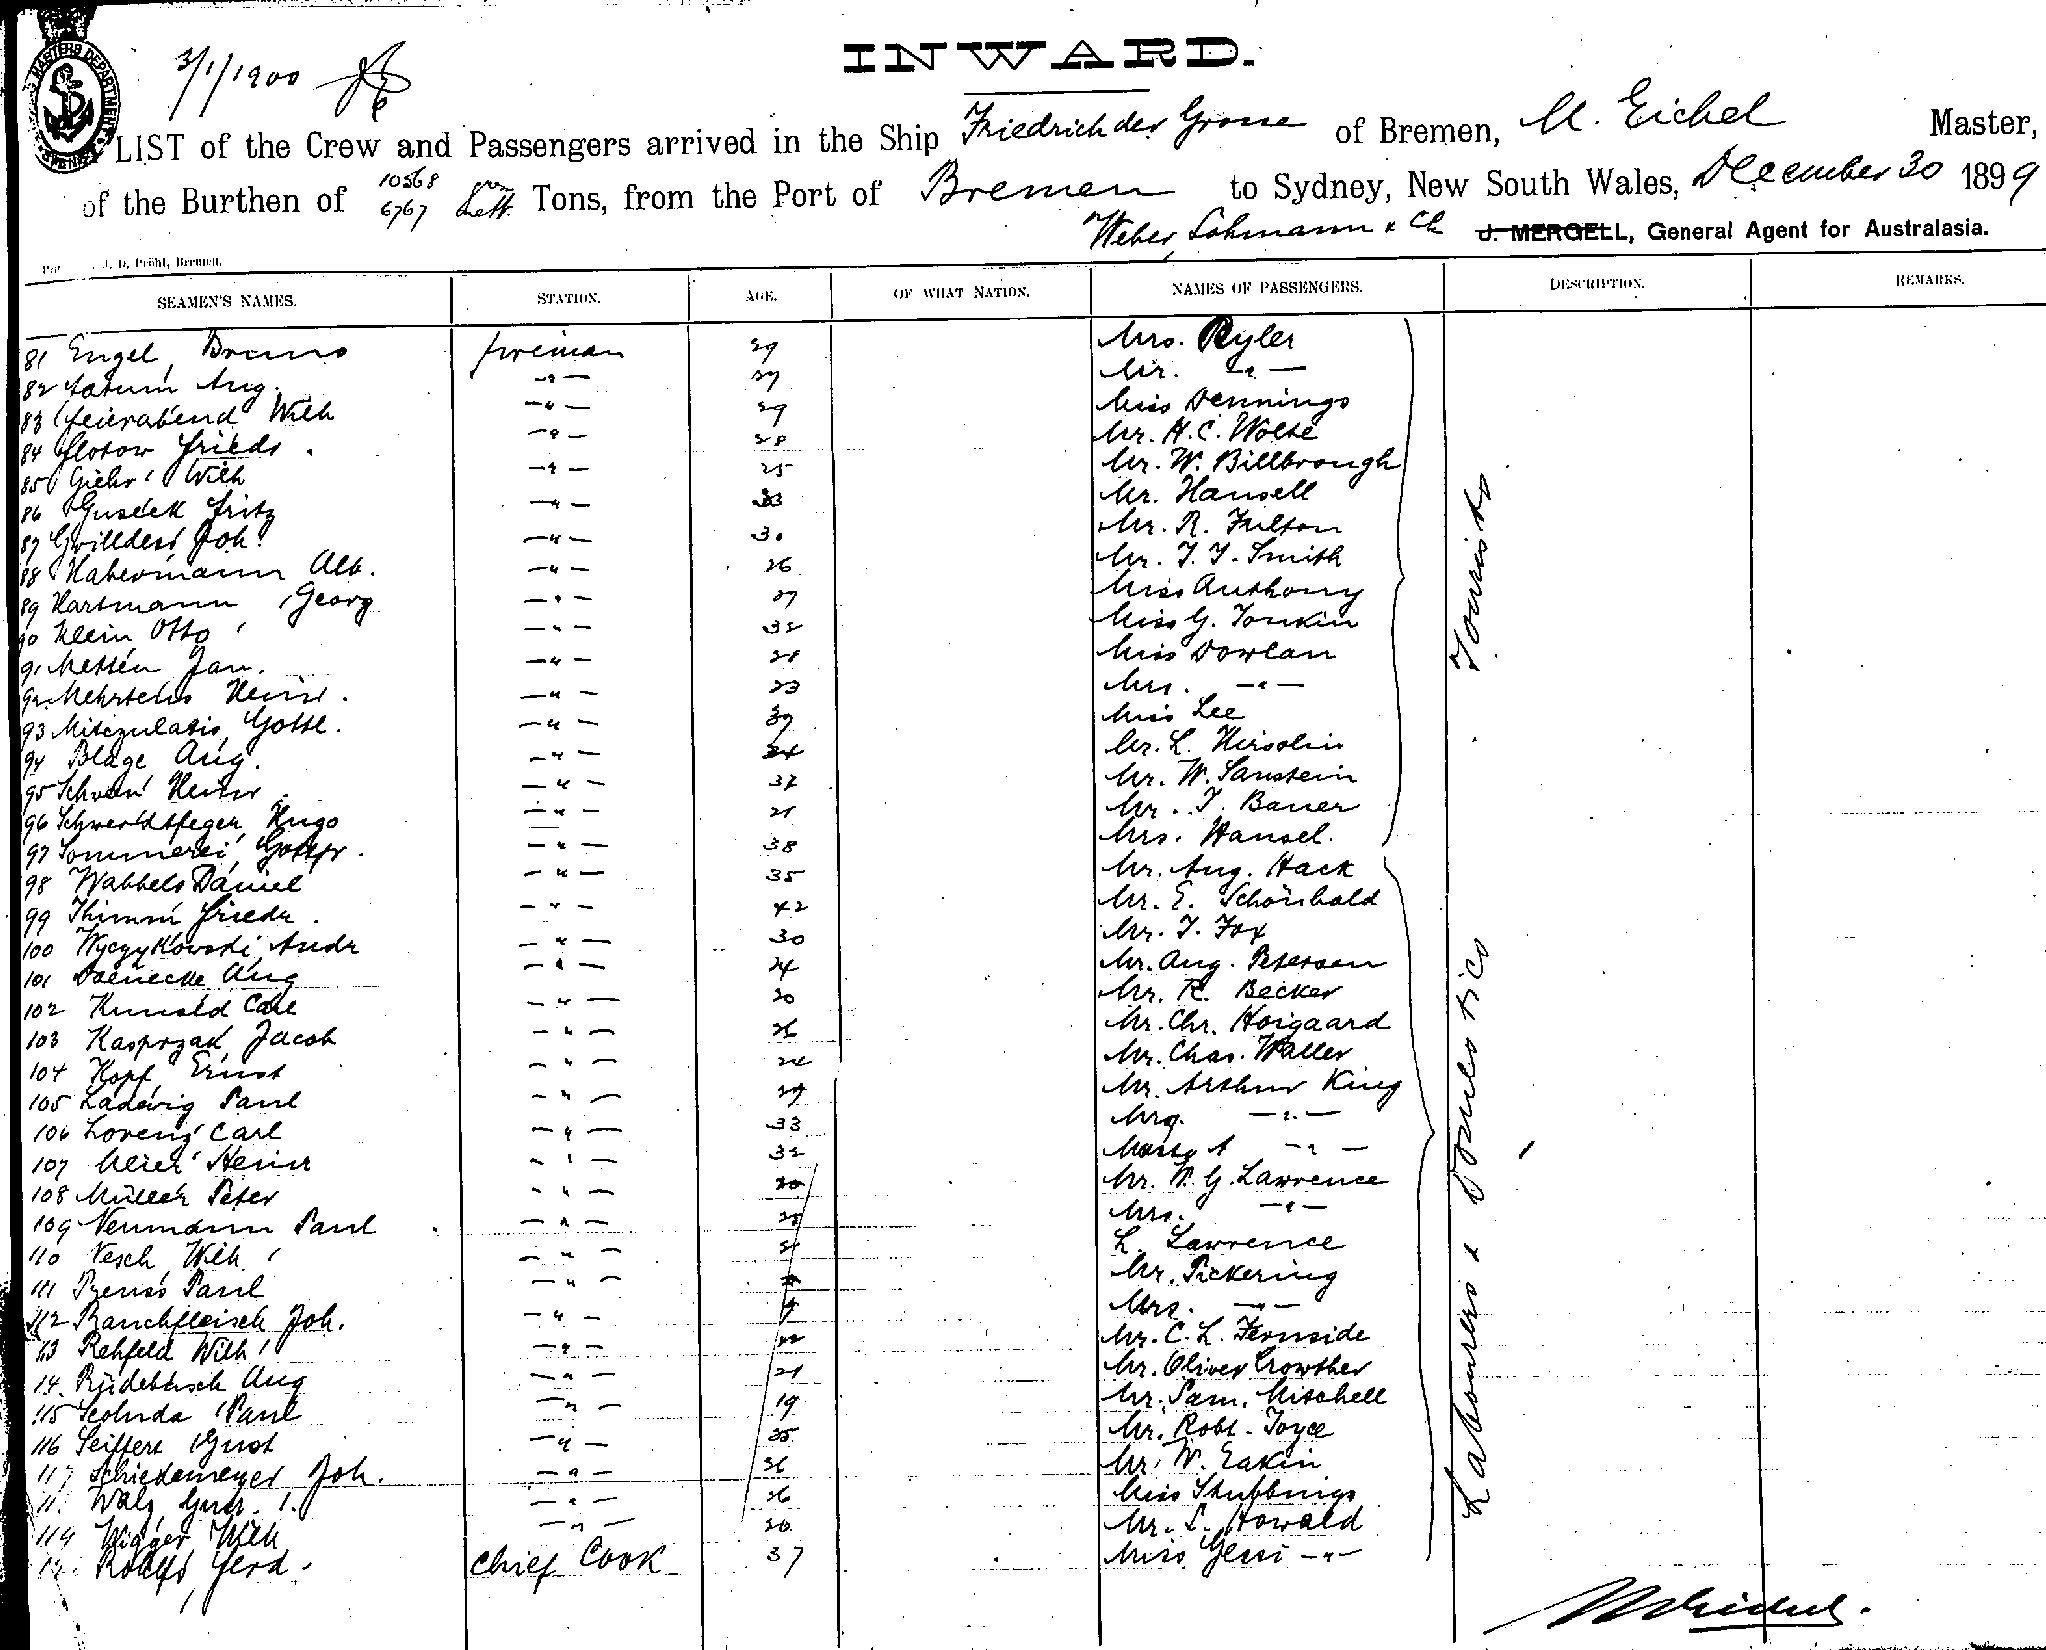 INWARD.
3/1/1900
LIST of the Crew and Passengers arrived in the Ship Friedrich der Grosse of Bremen, M. Eichel Master,
of the Burthen of 10568 6767 Tons, from the Port of Bremen to Sydney, New South Wales, December 30 1899
Weber, Lohmann & Co J. MERGELL, General Agent for Australasia.
SEAMEN'S NAMES. STATION. AGE. OF WHAT NATION. NAMES OF PASSENGERS. DESCRIPTION. REMARKS.
81 Engel, Bruno fireman 29 Mrs. Ryler
82 Aug. -"- 27 Mr. -"-
83 Feierabend Wilh -"- 29 Miss Dennings
84 Flotow Friedr. -"- 28 Mr. H. C. Wolte
85 Giehr Wilh -"- 25 Mr. W. Billbrough
86 Guseck Fritz -"- 33 Mr. Hansell
87 Joh. -"- 30 Mr. R. Fulton
88 Habermann Alb. -"- 26 Mr. T. T. Smith
89 Hartmann Georg -"- 27 Miss Anthony
90 Klein Otto -"- 32 Miss G. Tonkin
91 Metten Jan. -"- 28 Miss Dowlan
92 Mehrtens Heinr. -"- 23 Mrs. -"-
93 Gottl. -"- 39 Miss Lee
94 Blage Aug. -"- 24 Mr. L.
95 Heinr. -"- 32 Mr. W. Sanstein
96 Schwerdtfeger, Hugo -"- 21 Mr. T. Bauer
97 Sommerei, Gottfr. -"- 38 Mrs. Hansel.
Tourists
98 Wabbels Daniel -"- 35 Mr. Aug. Hack
99 Thimm Friedr. -"- 42 Mr. E. Schönbald
100 Wyczykowski, Andr -"- 30 Mr. T. Fox
101 Doenecke Aug -"- 24 Mr. Aug. Petersen
102 Kunold Carl -"- 20 Mr. R. Becker
103 Kasprzak Jacob -"- 26 Mr. Chr. Hoigaard
104 Kopf, Ernst -"- 24 Mr. Chas. Waller
105 Ladewig Paul -"- 29 Mr. Arthur King
106 Lorenz Carl -"- 33 Mrs. -"-
107 Meier Heinr -"- 32 Mast. A -"-
108 Müller Peter -"- 20 Mr. W. G. Lawrence
109 Neumann Paul -"- 28 Mrs. -"-
110 Nesch Wilh -"- L. Lawrence
111 Preuss Paul -"- Mr. Pickering
112 Rauchfleisch Joh. -"- Mrs. -"-
113 Rehfeld Wilh -"- 22 Mr. C. L. Fernside
14 Rüdebusch Aug -"- 21 Mr. Oliver Crowther
115 Scoluda Paul -"- 19 Mr. Sam. Mitchell
116 Seiffert Gust -"- 25 Mr. Robt. Joyce
117 Schiedemeyer Joh. -"- 36 Mr. W. Eakin
11 Walz, Gust. -"- 26 Miss Stubbings
119 Wigger Wilh -"- 20 Mr. L. Howald
12 Rolffs, Ferd. Chief Cook 37 Miss Jessi -"-
Labourers & Domestics